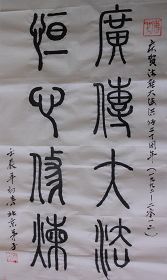 庆贺法轮大法洪传二十周年（一九九二-二零一二）
廣傳大法
恒心修煉
壬辰年初春北京弟子